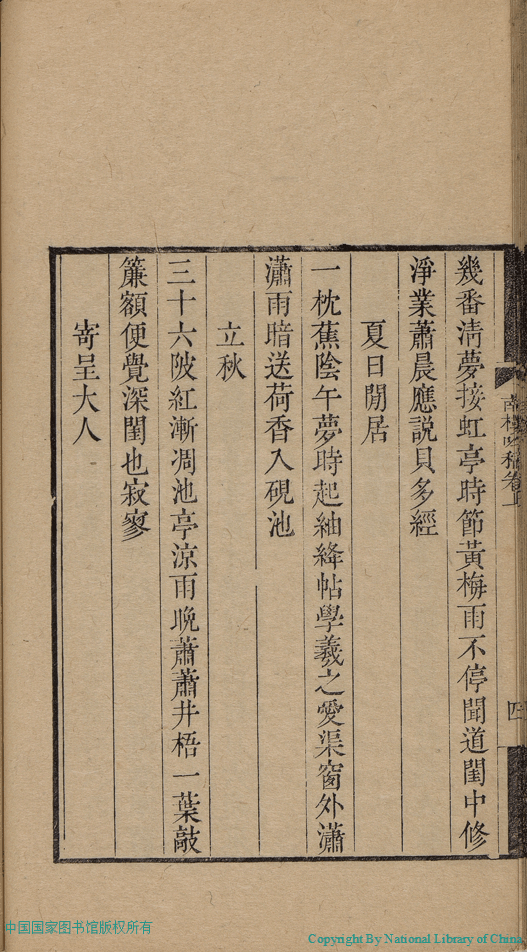 幾番淸夢接虹亭時節黃梅雨不停聞道閨中修
淨業蕭晨應說貝多經
夏日閒居
一枕蕉陰午夢時起紬絳帖學羲之愛渠窗外瀟
瀟雨暗送荷香入硯池
立秋
三十六陂紅漸凋池亭涼雨晚蕭蕭井梧一葉敲
簾額便覺深閨也寂寥
寄呈大人
四
中国国家图书馆版权所有
Copyright By National Library of China